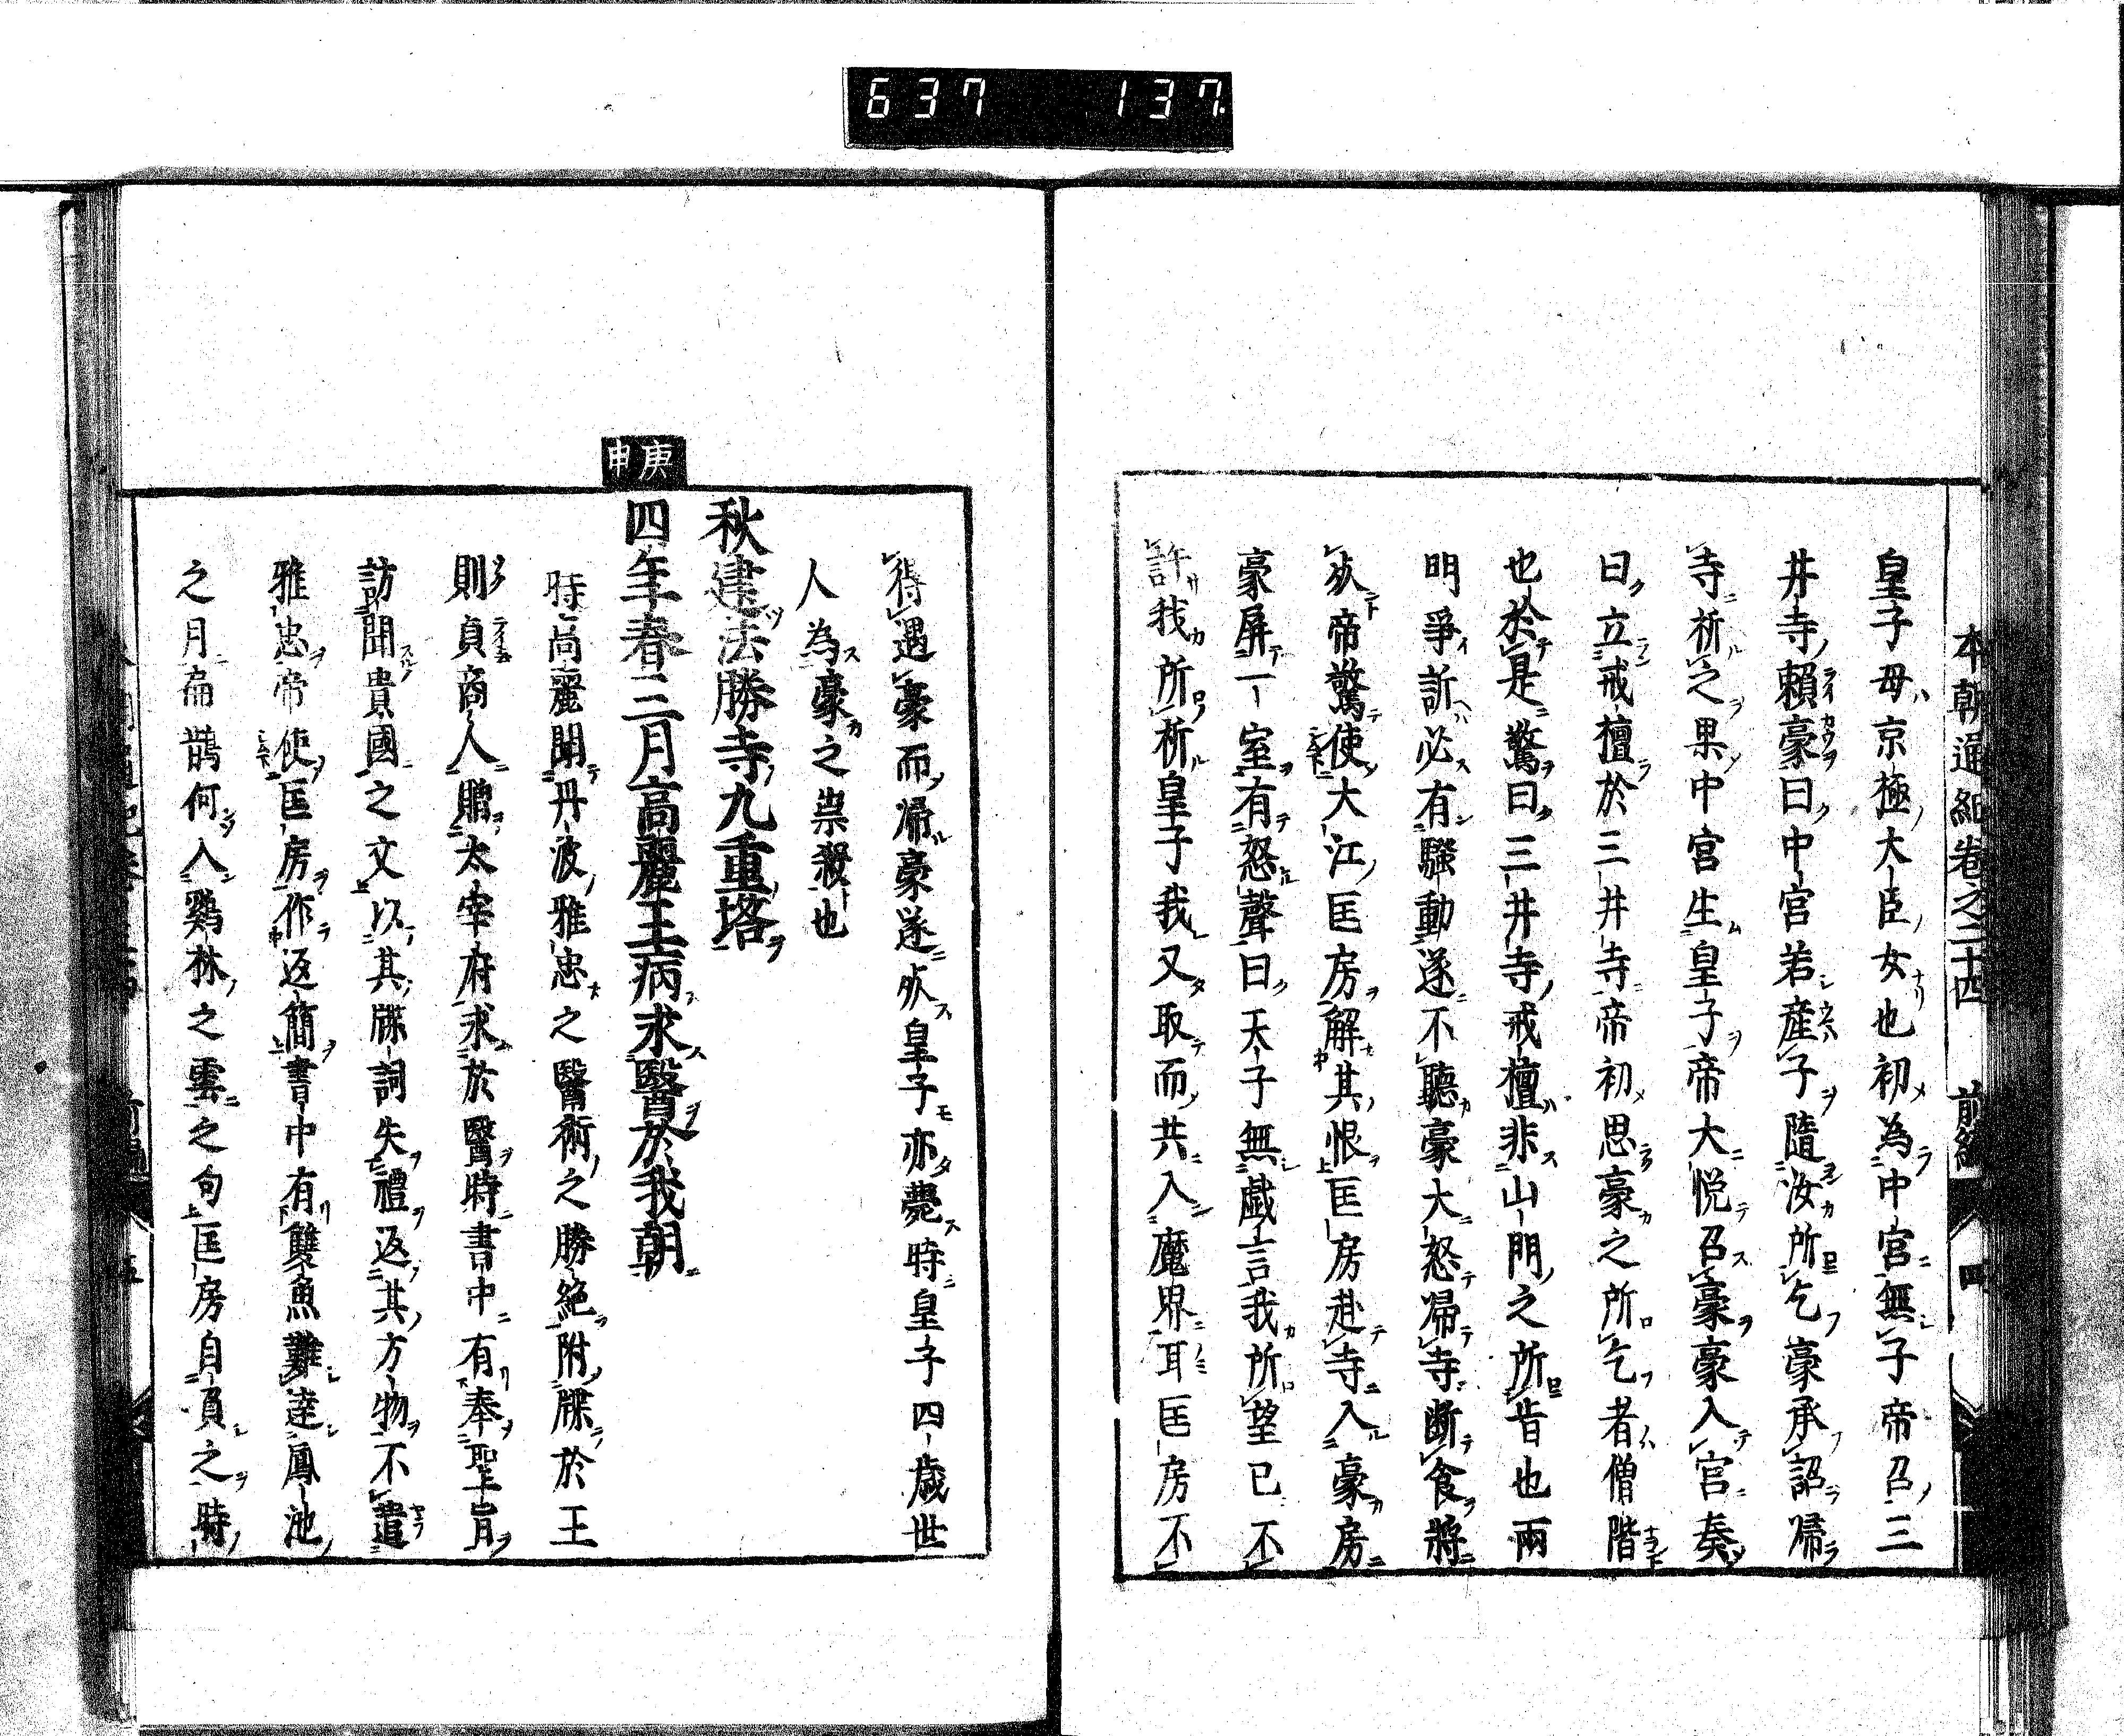 637 137
本朝通紀卷之二十四 前編 四
皇子母京極大臣女也初為中宮無子帝召三
井寺賴豪曰中宮若産子隨汝所乞豪承詔帰
寺祈之果中宮生皇子帝大悦召豪豪入宮奏
曰立戒檀於三井寺帝初思豪之所乞者僧階
也於是驚曰三井寺戒檀非山門之所肯也兩
明爭訢必有騷動遂不聽豪大怒帰寺断食將
死帝驚使大江匡房解其恨匡房赴寺入豪房
豪屏一室有怒聲曰天子無戯言我所望已不
許我所祈皇子我又取而共入魔界耳匡房不
得遇豪而帰豪遂死皇子亦薨時皇子四歳世
人為豪之祟殺也
秋建法勝寺九重塔
庚申
四年春二月高麗王病求醫於我朝
時高麗聞丹波雅忠之醫術之勝絶附牒於王
則貞商人贈太宰府求於醫時書中有奉聖旨
訪聞貴國之文以其牒詞失禮返其方物不遣
雅忠帝使匡房作返簡書中有雙魚難達鳳池
之月扁鵲何入鷄林之雲之句匡房自負之時